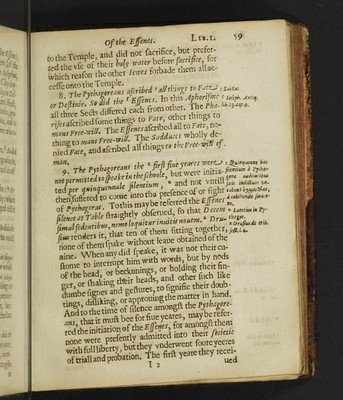 Of the Essenes. LIB. 1. 59
to the Temple, and did not sacrifice, but prefer-
red the vse of their holy water before sacrifice, for
which reason the other Iewes forbade them all ac-
cesse vnto the Temple.
8. The Pythagoreans ascribed all things to Fate
or Destinie. So did the Essenes. In this Aphorisme
all three Sects differed each from other. The Pha-
risees ascribed some things to Fate, other things to
mans Free-will. The Essenes ascribed all to Fate, no-
thing to mans Free-will. The Sadduces wholly de-
nied Fate, and ascribed all things to the Free-will of
man.
9. The Pythagoreans the first fiue yeares were
not permitted to speake in the schoole, but were initia-
ted per quinquennale silentium, and not vntill
then suffered to come into the presence of or sight
of Pythagoras. To this may be referred the Essenes
silence at Table straightly obserued, so that Decem
simul sedentibus, nemo loquitur inuitis nouem. Dru-
sius renders it, that ten of them sitting together,
none of them spake without leaue obtained of the
nine. When any did speake, it was not their cu-
stome to interrupt him with words, but by nods
of the head, or beckonings, or holding their fin-
ger, or shaking their heads, and other such like
dumbe signes and gestures, to signifie their doub-
tings, disliking, or approuing the matter in hand.
And to the time of silence amongst the Pythagore-
ans, that it must bee for fiue yeares, may be refer-
red the initiation of the Essenes, for amongst them
none were presently admitted into their societie
with full liberty, but they vnderwent foure yeeres
of triall and probation. The first yeare they recei-
I 2 ued